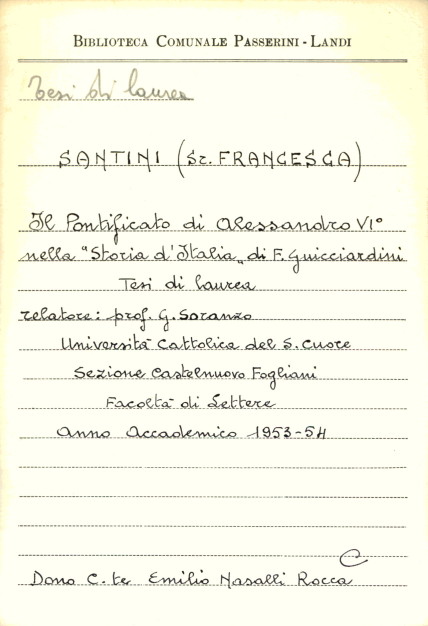 BIBLIOTECA COMUNALE PASSERINI-LANDI
Tesi di laurea
SANTINI (Sr. FRANCESCA)
Il Pontificato di Alessandro VI°
nella "Storia d'Italia„ di F. Guicciardini
Tesi di laurea
relatore: prof. G. Soranzo
Università Cattolica del S. Cuore
Sezione Castelnuovo Fogliani
Facoltà di Lettere
Anno Accademico 1953-54
C
Dono C.te Emilio Nasalli Rocca